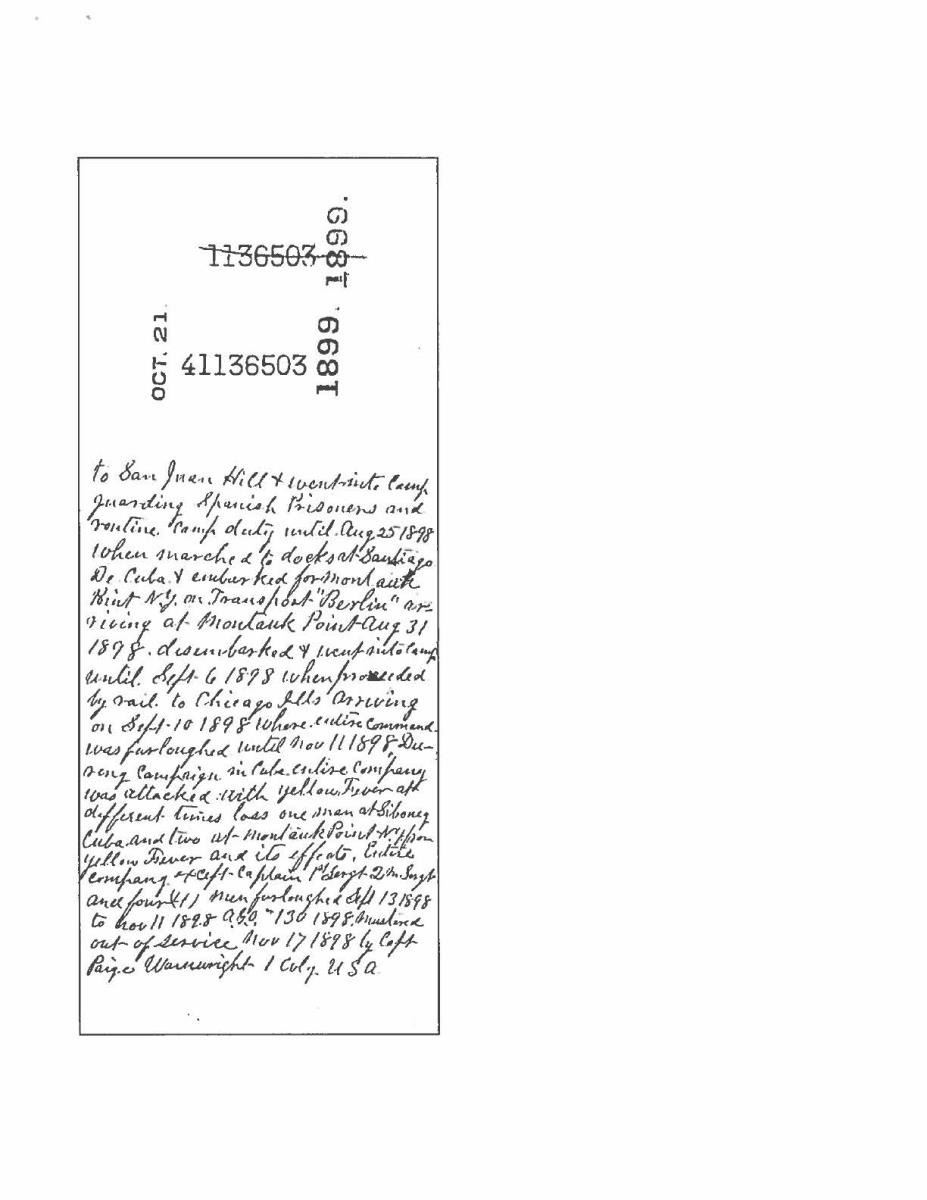 1136503
1899.
OCT. 21
41136503
1899.
to San Juan Hill & went into Camp
guarding Spanish Prisoners and
routine Camp duty until Aug 25 1898
when marched to docks at Santiago
De Cuba & embarked for Montauk
Point N.Y. on Transport "Berlin" ar-
riving at Montauk Point Aug 31
1898. disembarked & went into Camp
until Sept 6 1898 when proceeded
by rail to Chicago Ills arriving
on Sept 10 1898 where entire command
was furloughed until Nov 11 1898, Du-
ring Campaign in Cuba entire Company
was attacked with yellow Fever at
different times loss one man at Siboney
Cuba and two at Montauk Point N.Y. from
yellow Fever and its effects, Entire
company except Captain 1st Sergt 2 M Sergt
and four (4) men furloughed Sept 13 1898
to Nov 11 1898 A.G.O. 130 1898. Mustered
out of service Nov 17 1898 by Capt
Wainwright 1 Cvly. U S A